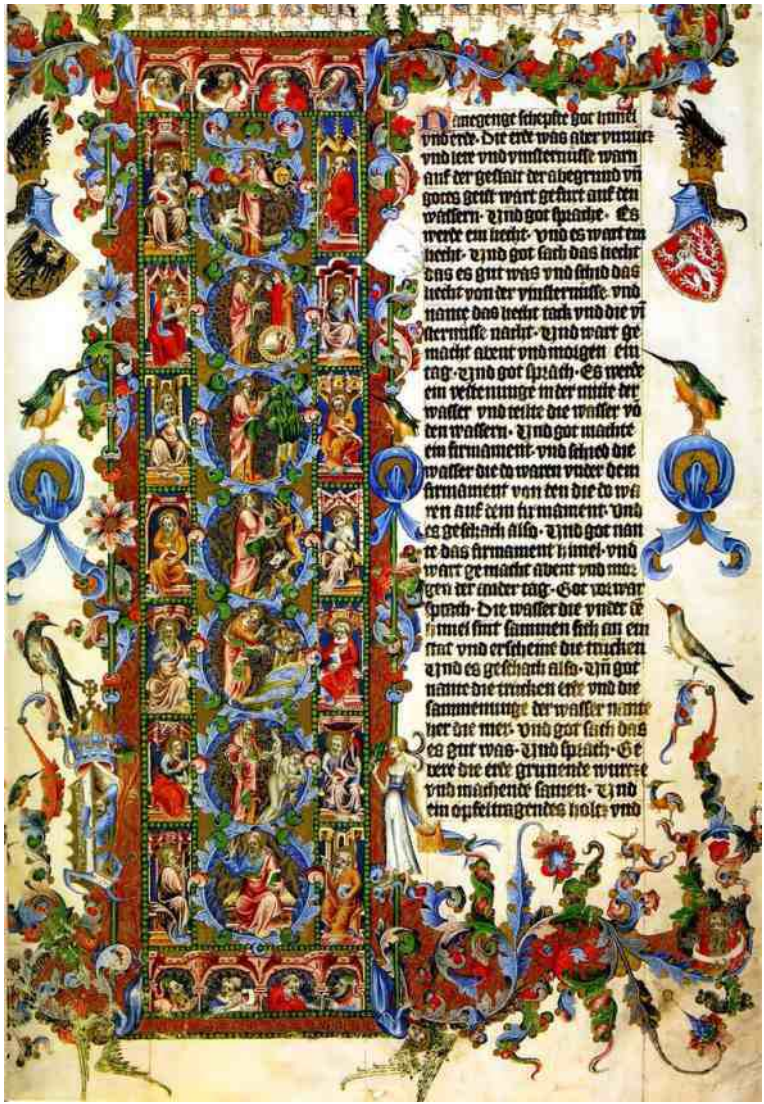 Nanegenge schepfte got himel
vnd erde. Die erde was aber vnnutz
vnd lere vnd vinsternusse warn
auf der gestalt der abegrund vn̄
gotes geist wart gefurt auf den
wassern. Vnd got sprache. Es
werde ein liecht. vnd es wart ein
liecht. Vnd got sach das liecht
das es gut was vnd schid das
liecht von der vinsternusse. vnd
nante das liecht tack vnd die vī
sternusse nacht. Vnd wart ge
macht abent vnd morgen ein
tag. Vnd got sprach. Es werde
ein vestenunge in der mitte der
wasser vnd teilte die wasser vō
den wassern. Vnd got machte
ein firmament. vnd schied die
wasser die do waren vnder dem
firmament von den die do wa
ren auf dem firmament. vnd
es geschach also. Vnd got nan
te das firmament himel. vnd
wart gemacht abent vnd mor
gen der ander tag. Got vorwar
sprach. Die wasser die vnder dē
himel sint sammen sich an ein
stat vnd erscheine die trucken
Vnd es geschach also. Vn̄ got
nante die trucken erde vnd die
sammenunge der wasser nante
her die mer. vnd got sach das
es gut was. Vnd sprach. Ge
bere die erde grunende wurcze
vnd machende samen. Vnd
ein opfeltragendes holcz vnd